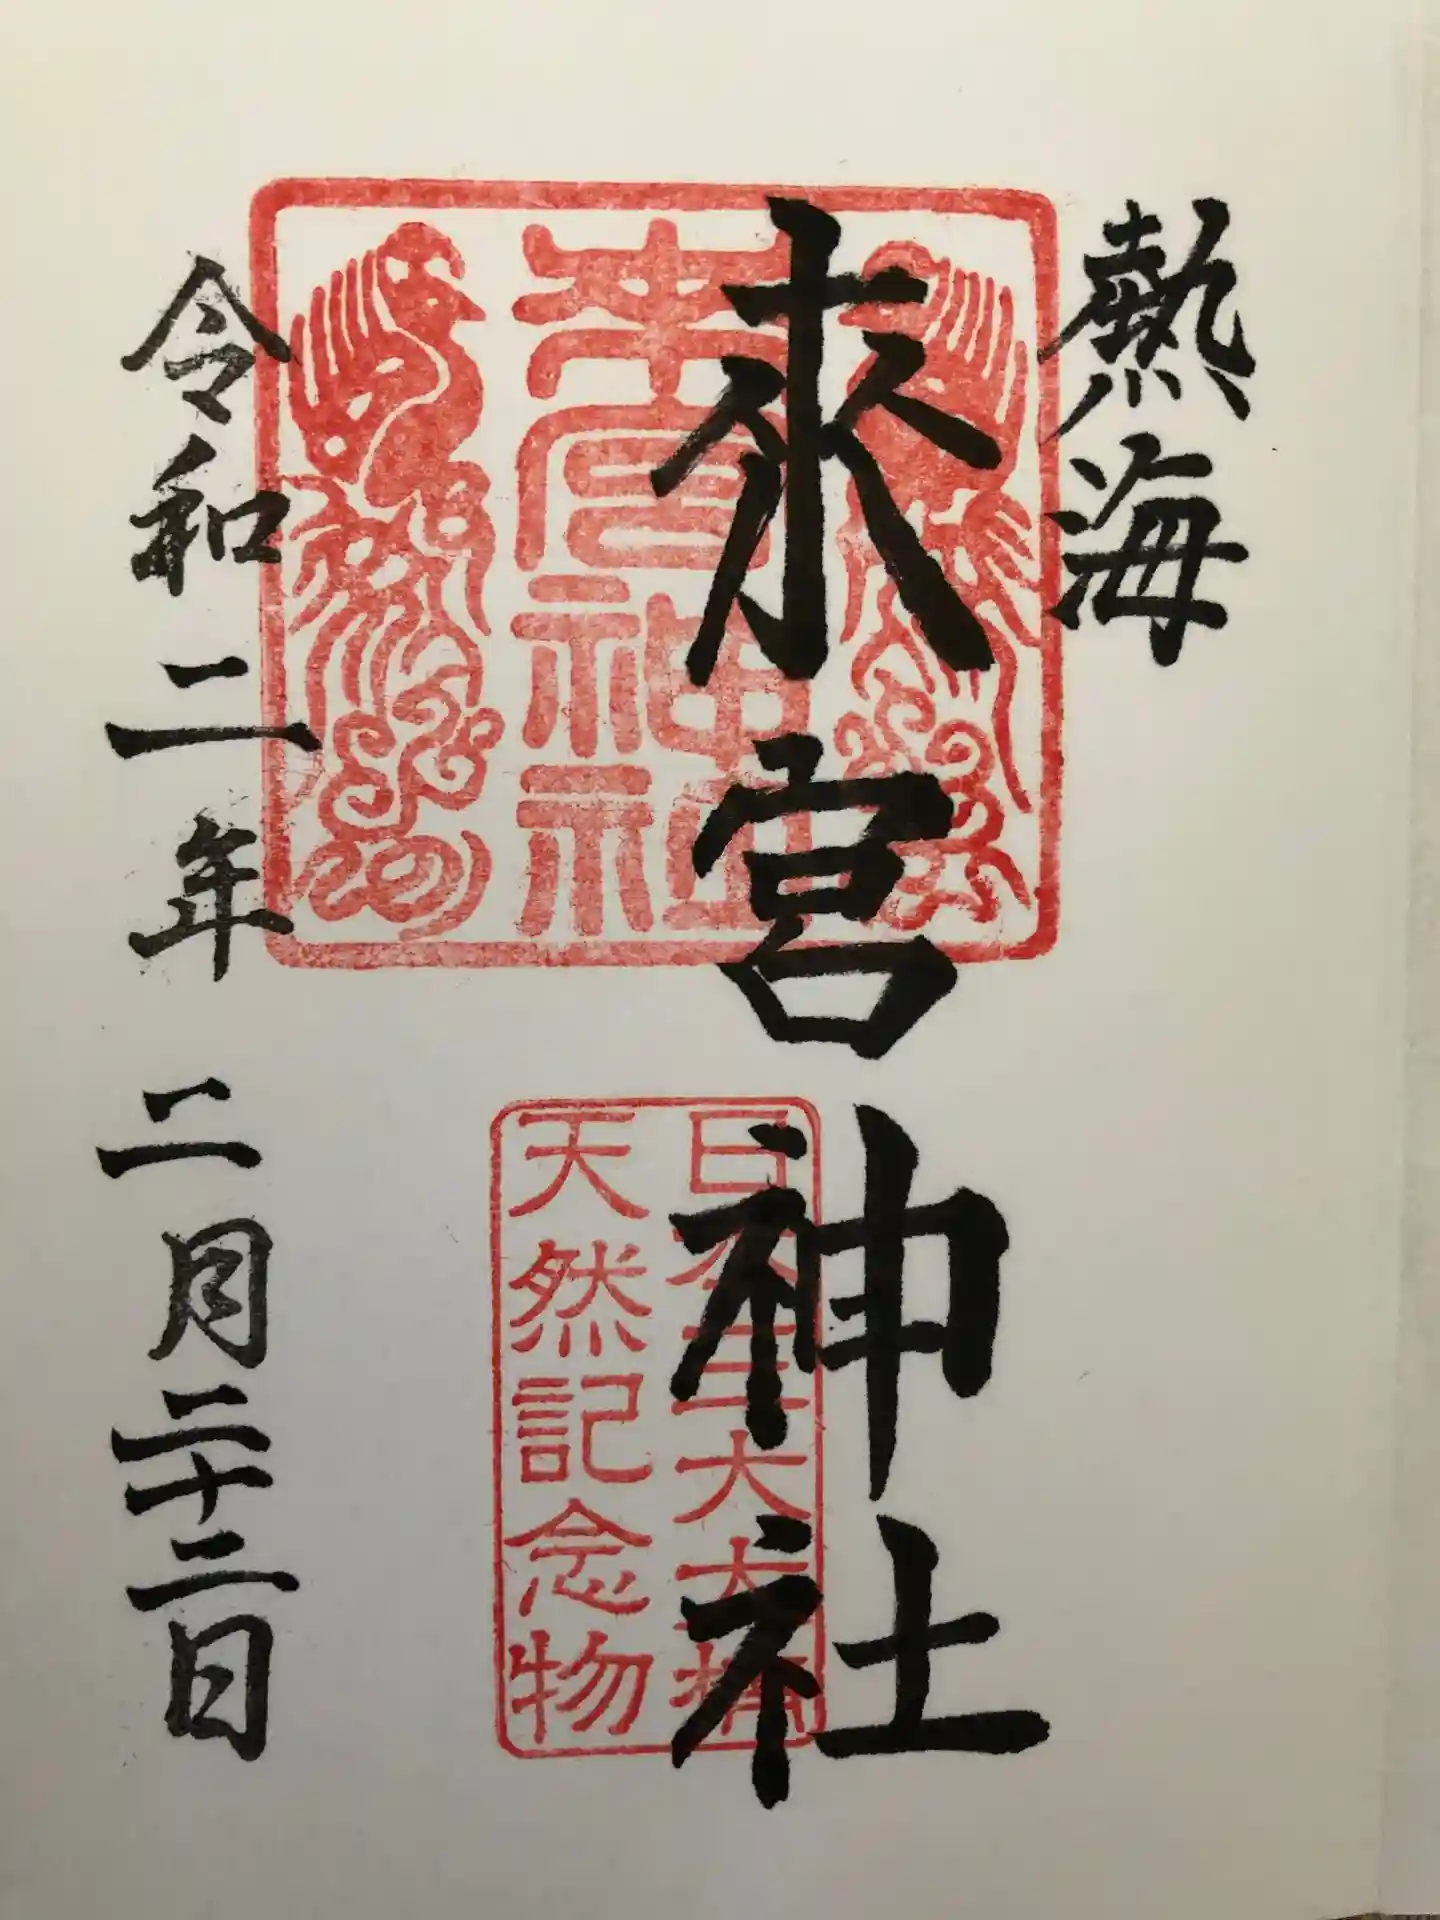 熱海
來宮神社
來宮神社
日本三大大楠
天然記念物
令和二年二月二十二日